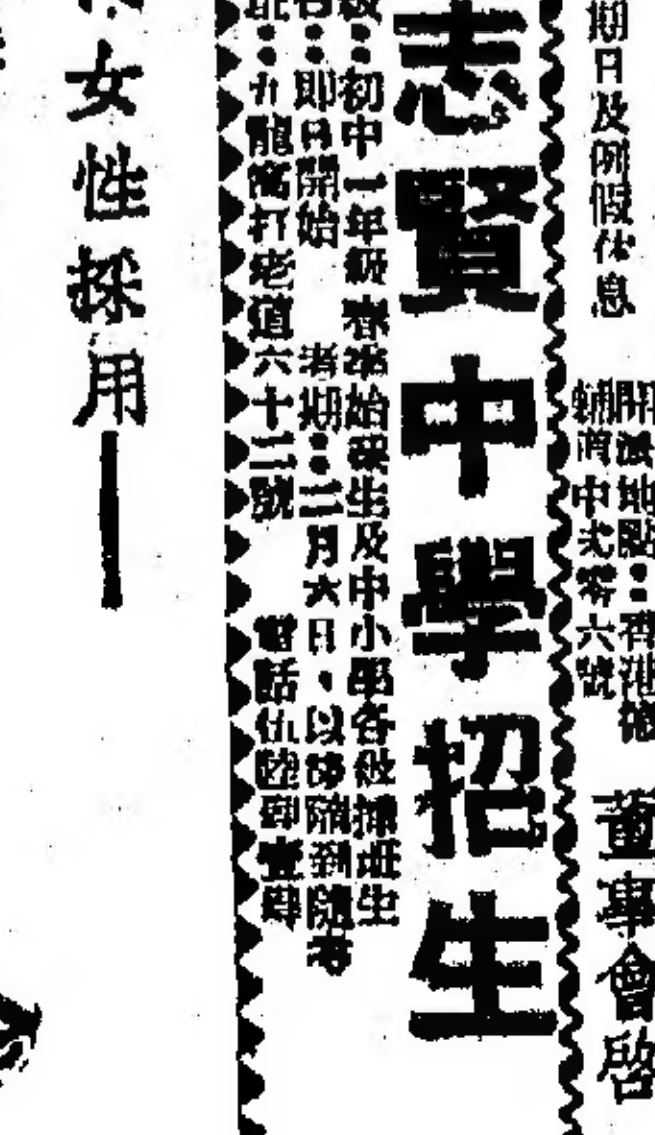 期日及例假休息
開演地點：香港德
輔道中 零六號
董事會啟
志賢中學招生
級：初中一年級春季始業生及中小學各級插班生
名：即日開始 考期：二月六日，以後隨到隨考
址：九龍窩打老道六十二號 電話 陸 壹肆
女性採用